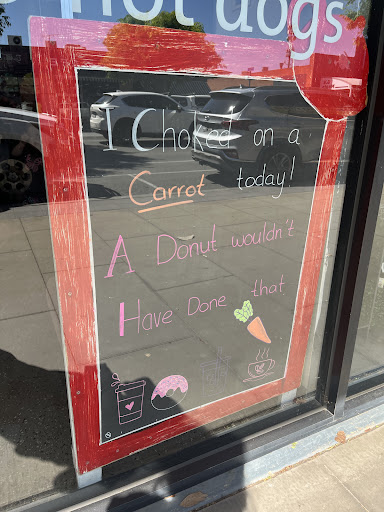 hot dogs
I Choked on a
Carrot today!
A Donut wouldn't
Have Done that